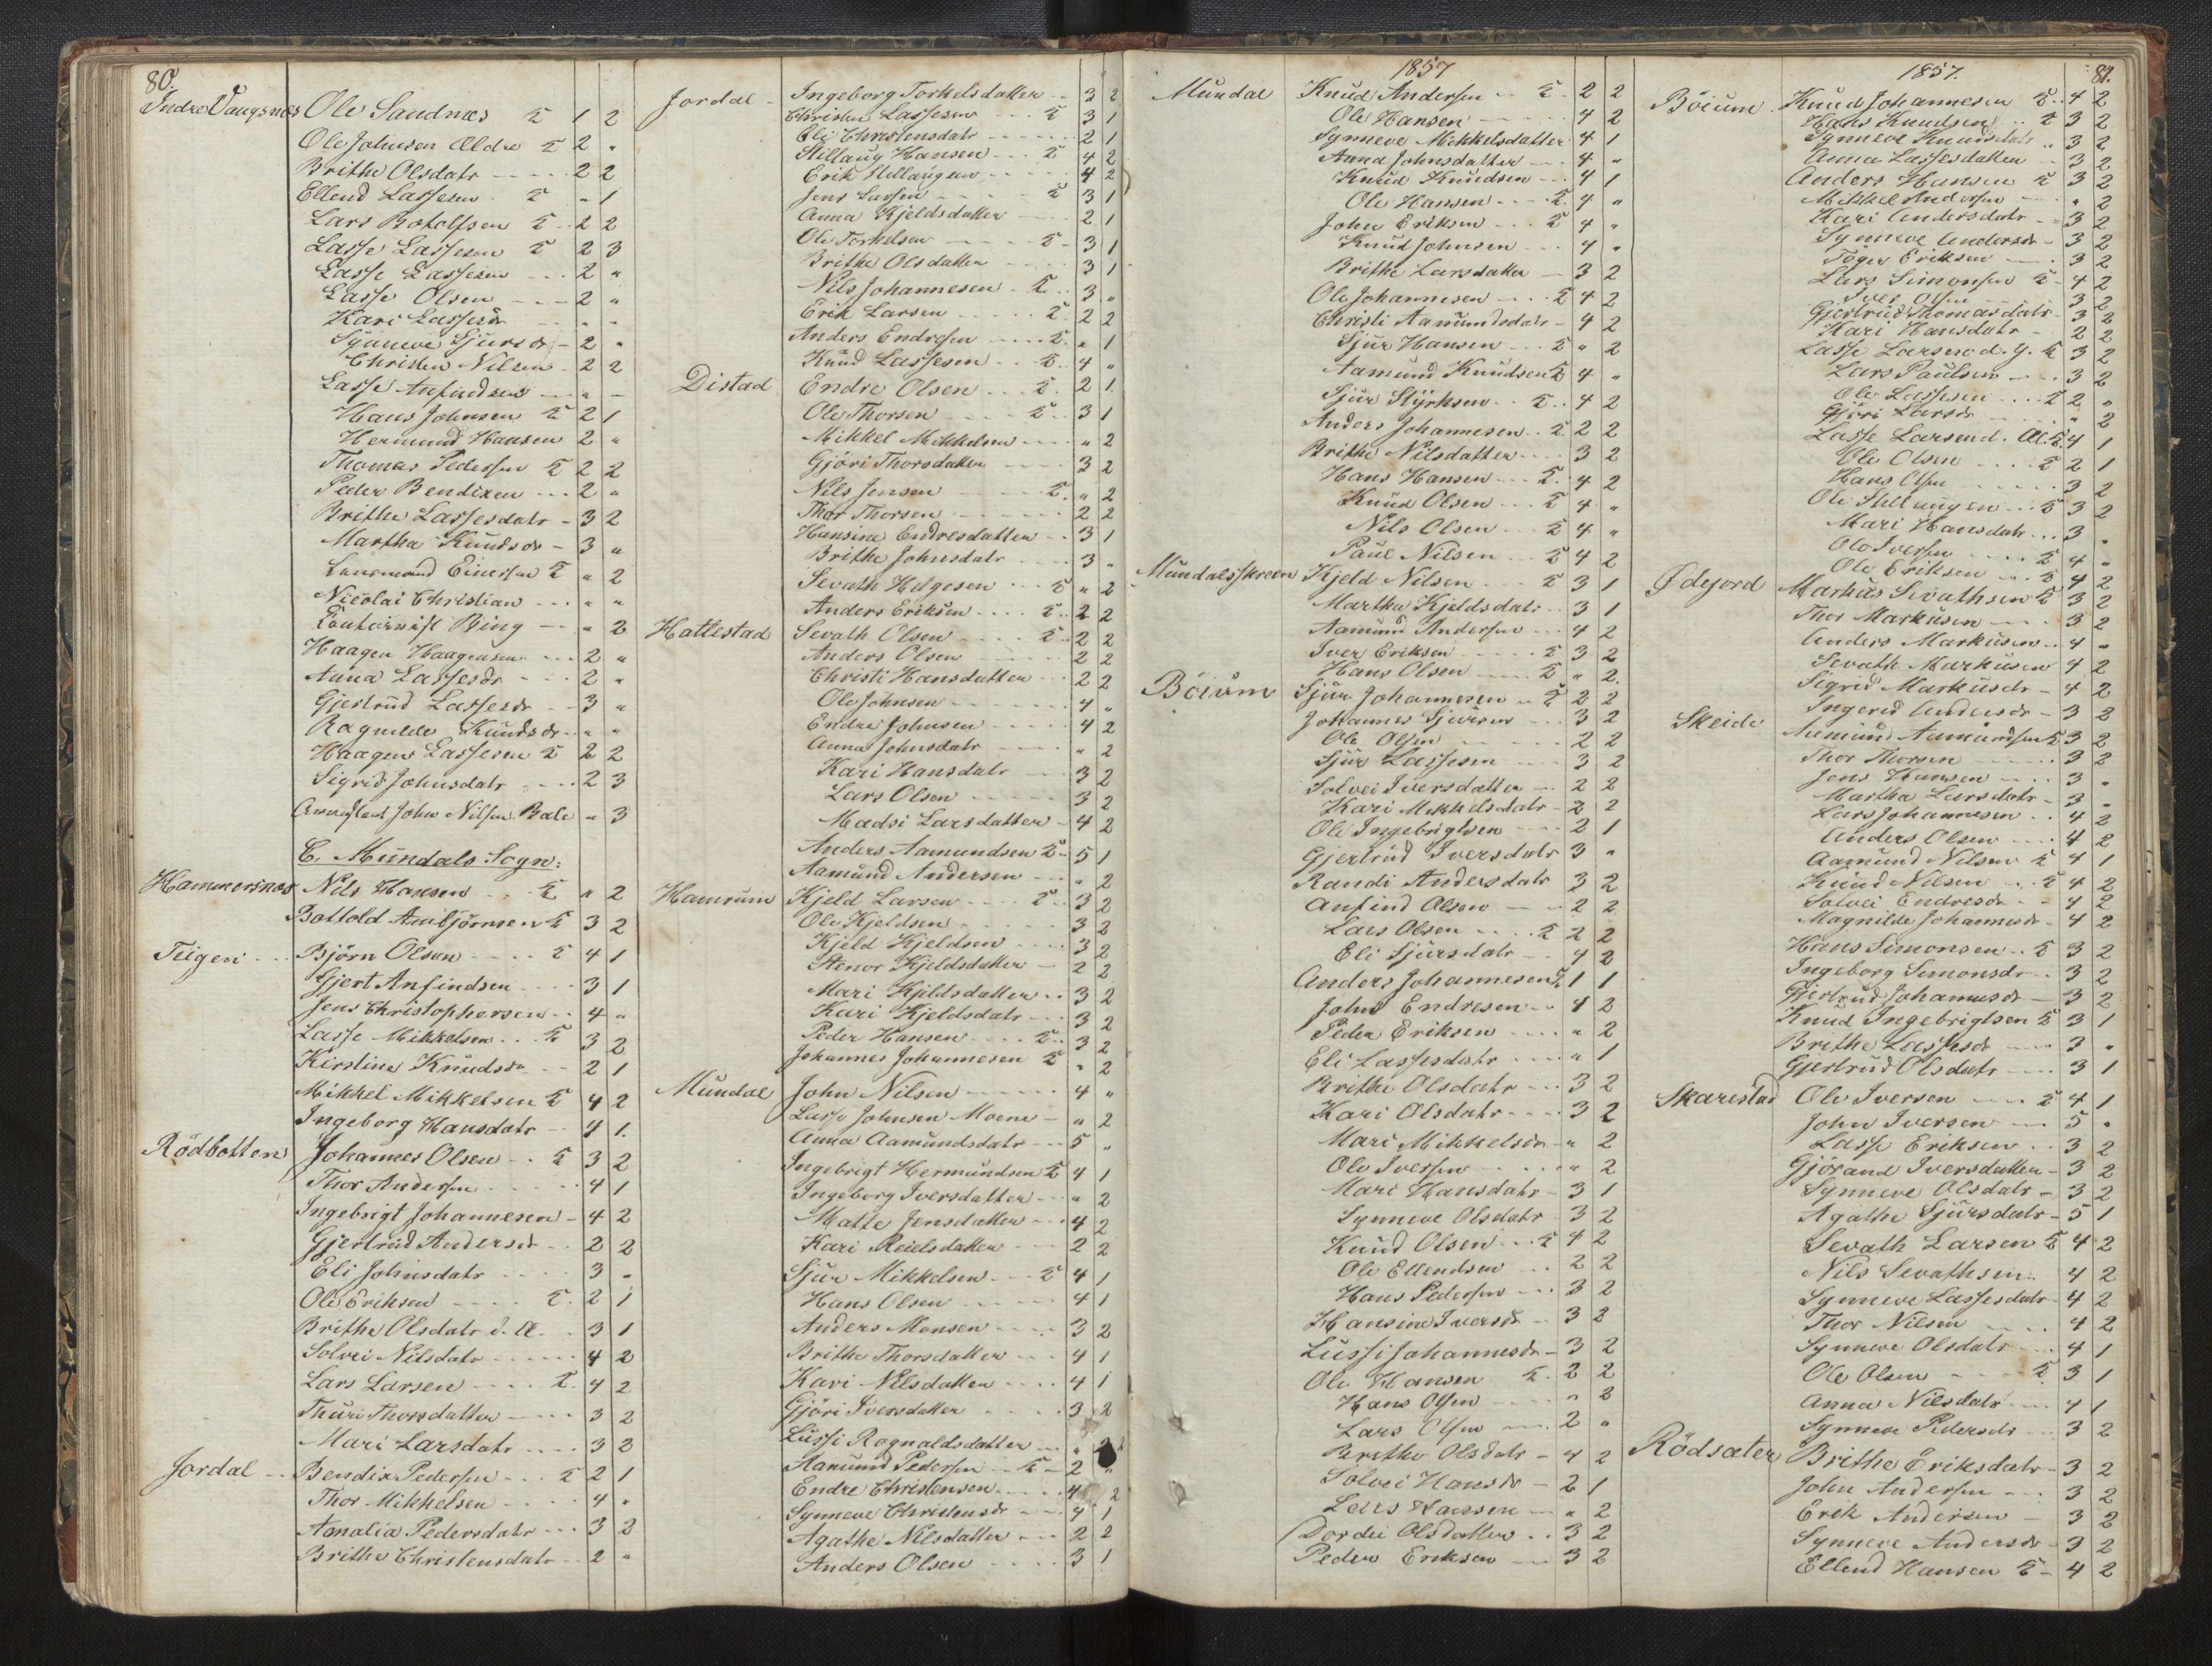 80.
Indre Vangsnes Ole Sandnæs 1 2
Ole Johnsen Ældre 2 "
Brithe Olsdatr 2 2
Ellend Lassesen " 1
Lars Botolfsen 2 2
Lasse Lassesen 2 3
Lasse Lassesen 2 "
Lasse Olsen 2 "
Kari Lassesdr " "
Synneve Sjursdr 2 "
Christen Nilsen 2 2
Lasse Anfindsen " "
Hans Johnsen 2 1
Hermund Hansen 2 "
Thomas Pedersen 2 2
Peder Bendixen 2 "
Brithe Lassesdatr 3 2
Martha Knudsdr 3 "
Einersen " 2
Nicolai Christian " "
Bing " 2
Haagen Haagensen 2 "
Anna Lassesdr 2 "
Gjertrud Lassesdr 3 "
Ragnilde Knudsdr " "
Haagen Lassesen 2 2
Sigrid Johnsdatr 2 3
John Nilsen Bale " 3
C. Mundals Sogn:
Hammersnæs Nils Hansen " 2
Bottold Ambjörnsen 3 2
Teigen Björn Olsen 4 1
Gjert Anfindsen 3 1
Jens Christophersen 4 "
Lasse Mikkelsen 3 2
Kirstine Knudsdr 2 1
Mikkel Mikkelsen 4 2
Ingeborg Hansdatr 4 1
Rödbotten Johannes Olsen 3 2
Thor Andersen 4 1
Ingebrigt Johannesen 4 2
Gjertrud Andersdr 2 2
Eli Johnsdatr 3 "
Ole Eriksen 2 1
Brithe Olsdatr d. Æ. 3 1
Solvei Nilsdatr 4 2
Lars Larsen 4 2
Thuri Thorsdatter 3 2
Mari Larsdatr 3 2
Jordal Bendix Pedersen 2 1
Thor Mikkelsen 4 "
Amalia Pedersdatr 3 2
Brithe Christensdatr 2 "
Jordal Ingeborg Torkelsdatter 3 2
Christen Lassesen 3 1
Eli Christensdatr 2 1
Stillaug Hansen 4 2
Erik Stillaugsen 4 2
Jens Larsen 3 1
Anna Kjeldsdatter 2 1
Ole Torkelsen 3 1
Brithe Olsdatter 3 1
Nils Johannesen 3 "
Erik Larsen 2 2
Anders Endresen " 1
Knud Lassesen 4 "
Distad Endre Olsen 2 1
Ole Thorsen 3 1
Mikkel Mikkelsen " 2
Gjöri Thorsdatter 3 2
Nils Jensen " 2
Thor Thorsen 2 2
Hansine Endresdatter 3 1
Brithe Johnsdatr 3 "
Sevath Helgesen " 2
Anders Eriksen 2 2
Hattestad Sevath Olsen 2 2
Anders Olsen 2 2
Christi Hansdatter 2 2
Ole Johnsen 4 "
Endre Johnsen 4 2
Anna Johnsdatr " 2
Kari Hansdatr 3 2
Lars Olsen 3 2
Madsi Larsdatter 4 2
Anders Aamundsen 5 1
Aamund Andersen " 2
Hamrum Kjeld Larsen 3 2
Ole Kjeldsen 3 2
Kjeld Kjeldsen 3 2
Stenor Kjeldsdatter 2 2
Mari Kjeldsdatter 3 2
Kari Kjeldsdatr 3 2
Peder Hansen 3 2
Johannes Johannesen " 2
Mundal John Nilsen 4 "
Lasse Johnsen Moene " 2
Anna Aamundsdatr 5 "
Ingebrigt Hermundsen 4 1
Ingeborg Iversdatter " 2
Matte Jensdatter 4 2
Kari Reielsdatter 2 2
Sjur Mikkelsen 4 1
Hans Olsen 4 1
Anders Monsen 3 2
Brithe Thorsdatter 4 1
Kari Nilsdatter 4 1
Gjöri Iversdatter 3 2
Lussi Rognaldsdatter "
Aamund Pedersen 2
Endre Christensen 4 2
Synneve Christensdr 4 1
Agathe Nilsdatter 2 2
Anders Olsen 3 1
1857
Mundal Knud Andersen 2 2
Ole Hansen 4 2
Synneve Mikkelsdatter 4 1
Anna Johnsdatter 4 "
Knud Knudsen 4 1
Ole Hansen 4 "
John Eriksen 4 "
Knud Johnsen 4 "
Brithe Larsdatter 3 2
Ole Johannesen 4 2
Christi Aamundsdatr 4 2
Sjur Hansen " 2
Aamund Knudsen 4 "
Sjur Styrksen 4 2
Anders Johannesen 2 2
Brithe Nilsdatter 3 2
Hans Hansen 4 2
Knud Olsen 4 "
Nils Olsen 4 "
Paul Nilsen 4 2
Mundalsskreen Kjeld Nilsen 3 1
Martha Kjeldsdatr 3 1
Aamund Andersen 4 2
Iver Eriksen 3 2
Hans Olsen " 2
Böium Sjur Johannesen 2 2
Johannes Sjursen 3 2
Ole Olsen 2 2
Sjur Lassesen 3 2
Solvei Iversdatter 2 2
Kari Mikkelsdatr 2 2
Ole Ingebrigtsen 2 1
Gjertrud Iversdatr 3 "
Randi Andersdatr 3 2
Anfind Olsen 2 2
Lars Olsen 2 2
Eli Sjursdatr 4 2
Anders Johannesen 1 1
John Endresen 4 2
Peder Eriksen " 2
Eli Lassesdatr " 1
Brithe Olsdatr 3 2
Kari Olsdatr 3 2
Mari Mikkelsdr " 2
Ole Iversen " 2
Mari Hansdatr 3 1
Synneve Olsdatr 3 2
Knud Olsen 4 2
Ole Ellendsen 2 2
Hans Pedersen 3 2
Hansine Iversdr 3 2
Lussi Johannesdr 3 2
Ole Hansen 2 2
Hans Olsen " 2
Lars Olsen 2 "
Brithe Olsdatr 4 2
Solvei Hansdr 2 1
Lars Hansen " 2
Dordei Olsdatter 3 2
Peder Eriksen 3 2
1857. 81.
Böium Knud Johannesen 4 2
Hans Knudsen 3 2
Synneve Knudsdatr 3 2
Anna Lassesdatter 3 2
Anders Hansen 3 2
Mikkel Andersen " 2
Kari Andersdatr 3 2
Synneve Andersdr 3 2
Töger Eriksen 3 2
Lars Simonsen 4 2
Iver Olsen 3 2
Gjertrud Thomasdatr 3 2
Kari Hansdatr 2 2
Lasse Larsen d. y. 3 2
Lars Paulsen 3 2
Ole Lassesen 2 "
Gjöri Larsdr " 2
Lasse Larsen d. Æ. 4 1
Ole Olsen 2 1
Hans Olsen 3 2
Ole Stillaugsen 3 2
Mari Hansdatr 3 "
Ole Iversen 4 "
Ole Eriksen 4 2
Ødejord Markus Sevathsen 3 2
Thor Markusen 3 2
Anders Markusen 4 "
Sevath Markusen 4 2
Sigrid Markusdr 4 2
Ingerid Andersdr 3 2
Skeide Aamund Aamundsen 3 2
Thor Thorsen 3 2
Jens Hansen 3 "
Martha Larsdatr 3 "
Lars Johannesen 4 2
Anders Olsen 4 2
Aamund Nilsen 4 1
Knud Nilsen 4 2
Solvei Endresdr 4 2
Magnilde Johannesdr 4 2
Hans Simonsen 3 2
Ingeborg Simonsdr 3 2
Gjertrud Johannesdr 3 2
Knud Ingebrigtsen 3 1
Brithe Lassesdr 3 "
Gjertrud Olsdatr 3 1
Skarestad Ole Iversen 4 1
John Iversen 5 "
Lasse Eriksen 3 2
Gjörand Iversdatter 3 2
Synneve Olsdatr 3 2
Agathe Sjursdatr 5 1
Sevath Larsen 4 2
Nils Sevathsen 4 2
Synneve Lassesdatr 4 2
Thor Nilsen 4 2
Synneve Olsdatr 4 1
Ole Olsen 3 1
Anna Nilsdatr 4 1
Synneve Pedersdr 3 2
Rödsæter Brithe Eriksdatr 3 2
John Andersen 3 2
Erik Andersen 3 2
Synneve Andersdr 3 2
Ellend Hansen 4 2